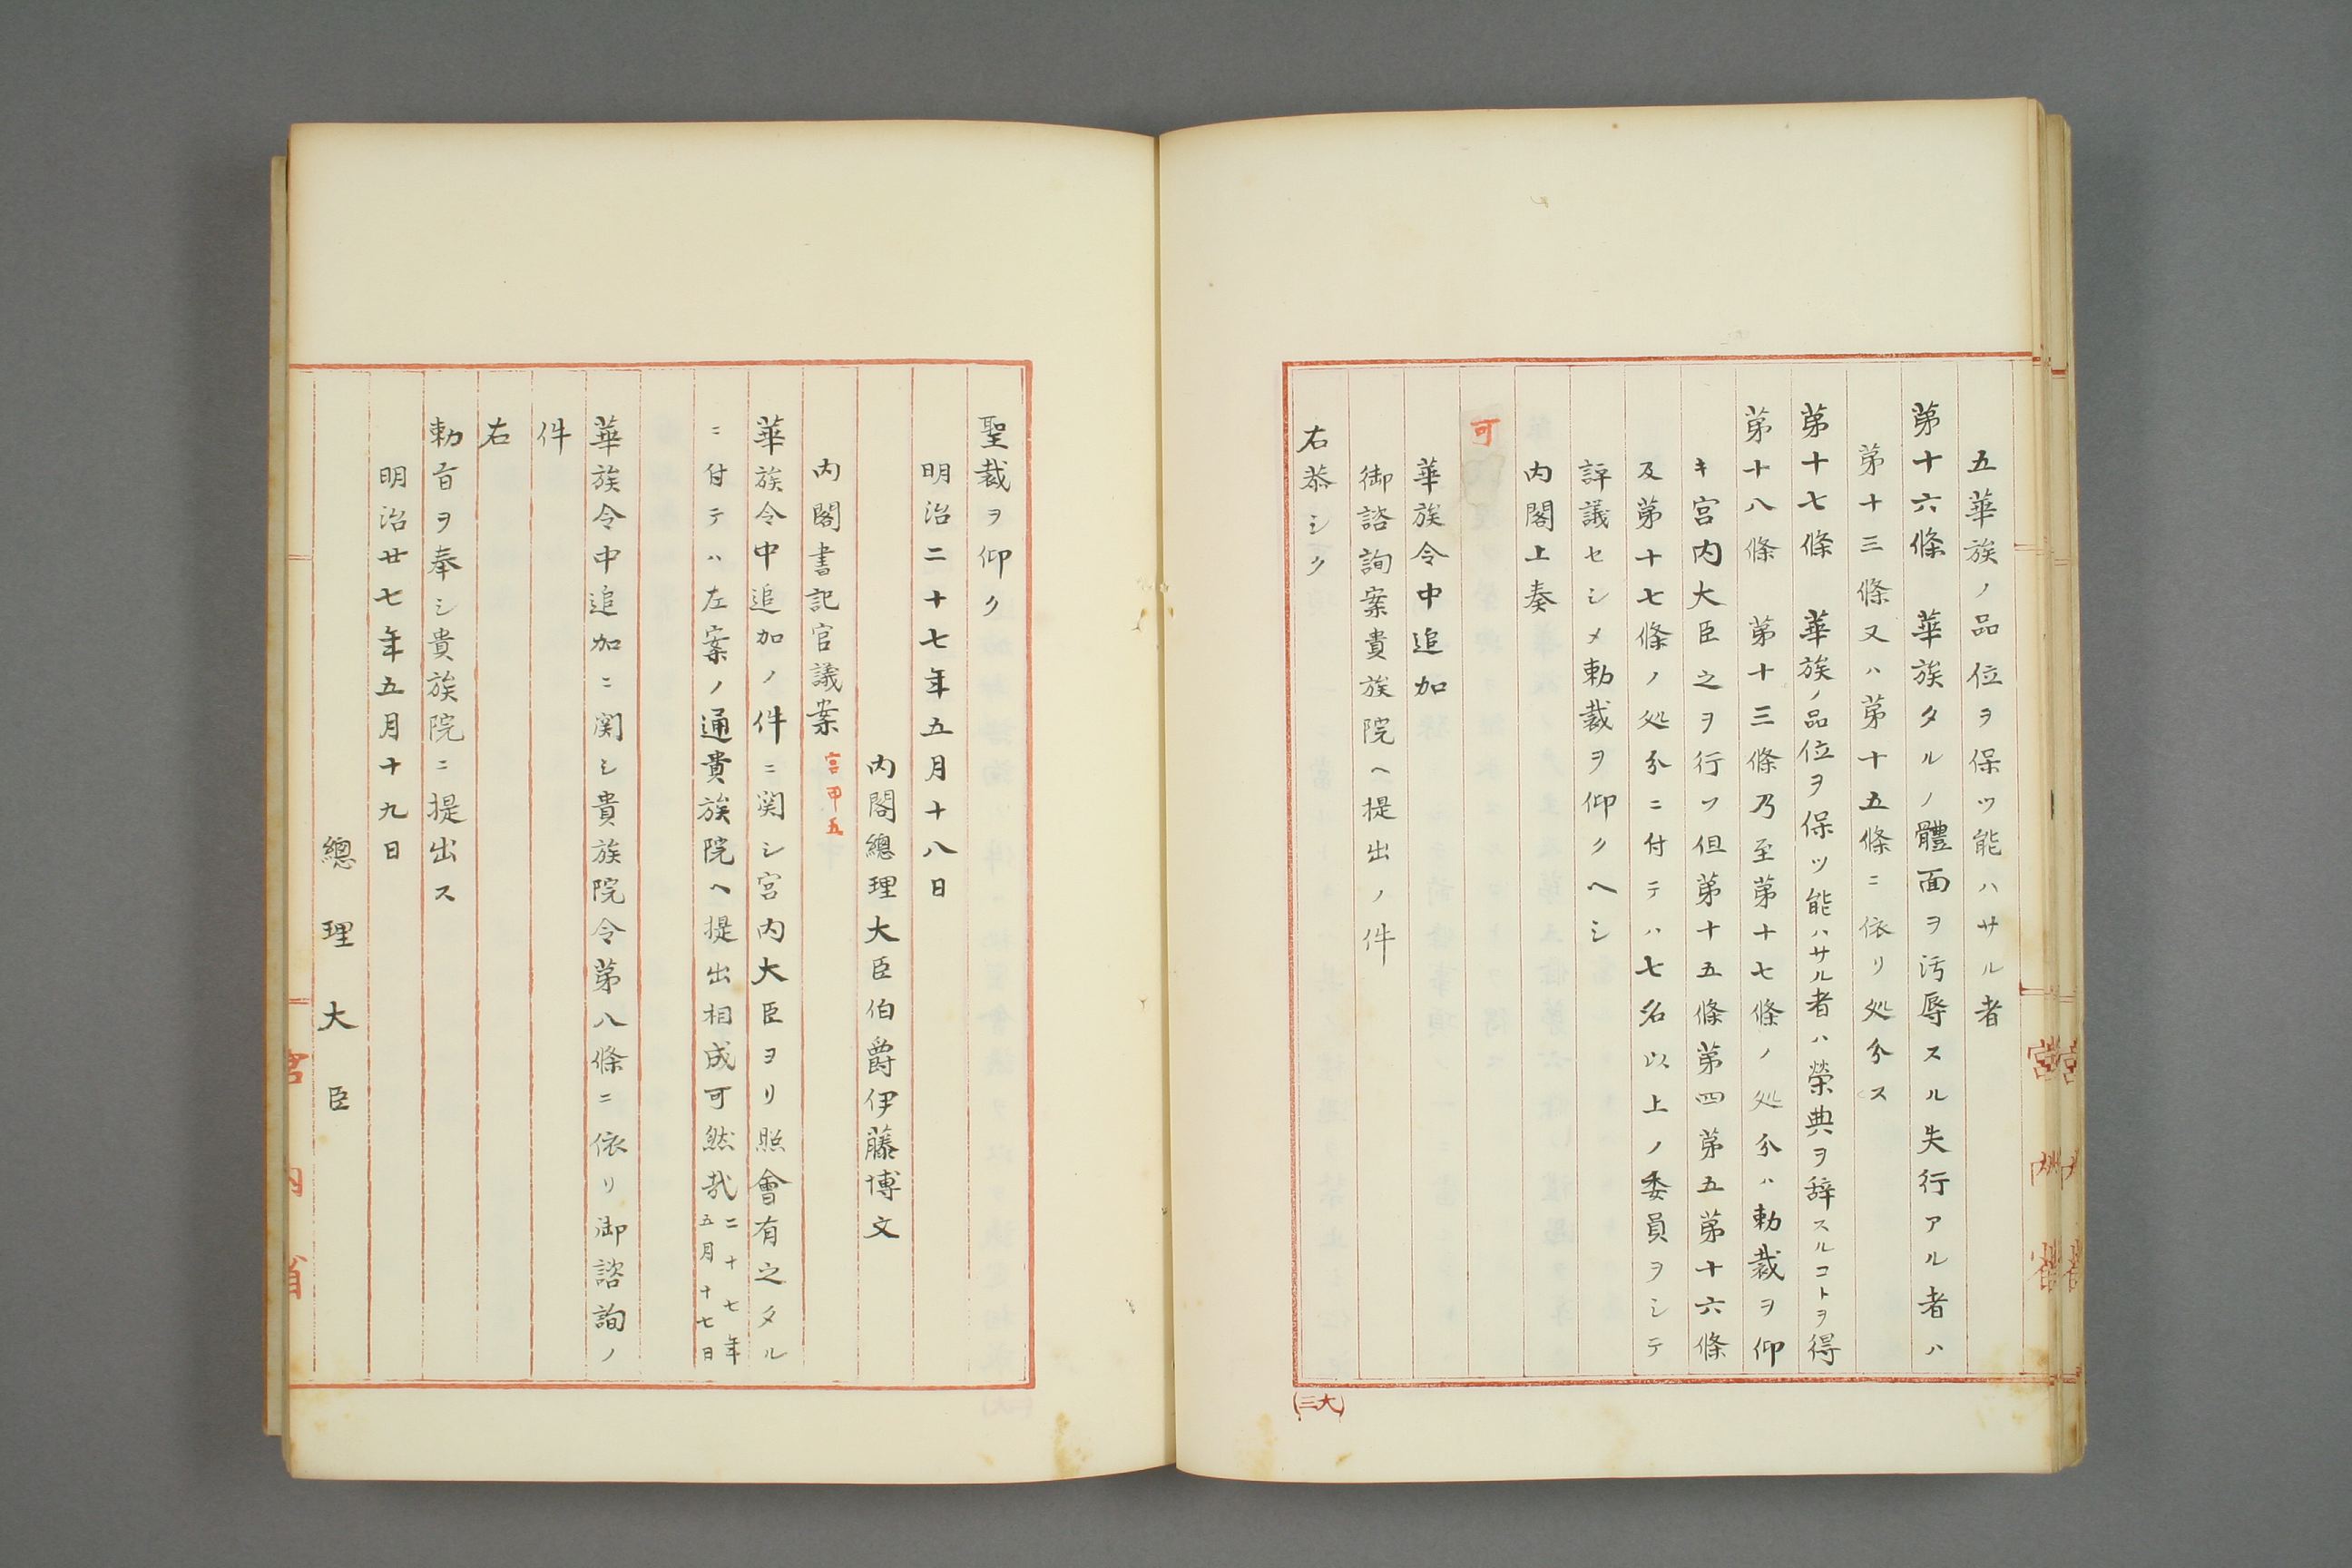 五華族ノ品位ヲ保ツ能ハサル者
第十六條　華族タルノ體面ヲ汚辱スル失行アル者ハ
第十三條又ハ第十五條ニ依リ処分ス
第十七條　華族ノ品位ヲ保ツ能ハサル者ハ榮典ヲ辞スルコトヲ得
第十八條　第十三條乃至第十七條ノ処分ハ勅裁ヲ仰
キ宮内大臣之ヲ行フ但第十五條第四第五第十六條
及第十七條ノ処分ニ付テハ七名以上ノ委員ヲシテ
評議セシメ勅裁ヲ仰クヘシ
内閣上奏
可
華族令中追加
御諮詢案貴族院ヘ提出ノ件
右恭シク
(大三)
聖裁ヲ仰ク
明治二十七年五月十八日
内閣總理大臣伯爵伊藤博文
内閣書記官議案 宮甲五
華族令中追加ノ件ニ関シ宮内大臣ヨリ照會有之タル
ニ付テハ左案ノ通貴族院ヘ提出相成可然哉 二十七年五月十七日
華族令中追加ニ関シ貴族院令第八條ニ依リ御諮詢ノ
件
右
勅旨ヲ奉シ貴族院ニ提出ス
明治廿七年五月十九日
總理大臣
宮内省